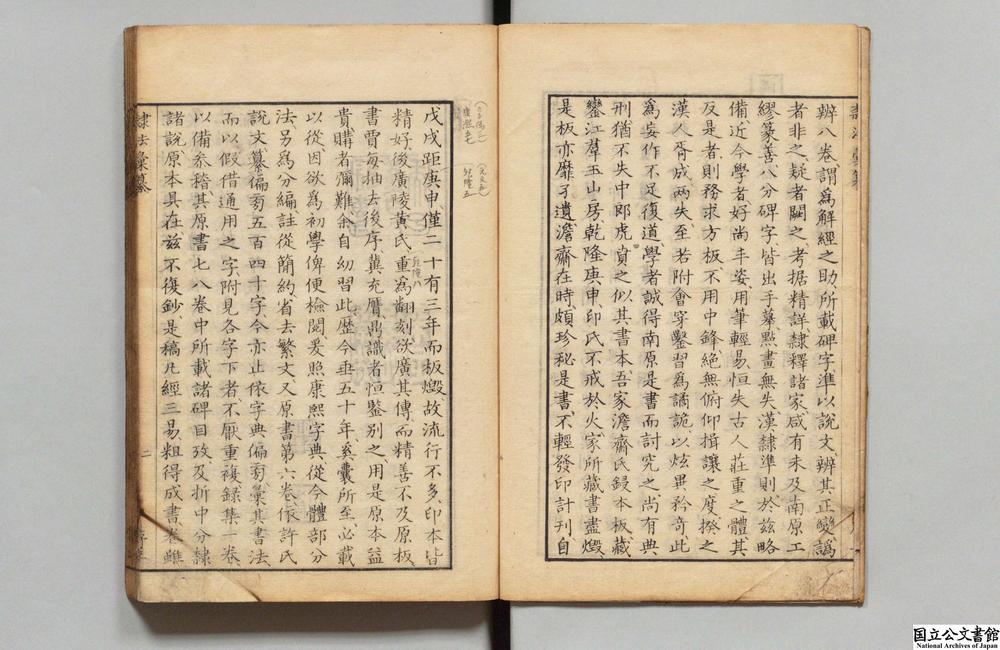 辨八卷謂爲解經之助所載碑字準以說文辨其正變譌
者非之疑者闕之考据精詳隸釋諸家咸有未及南原工
繆篆善八分碑字皆出手摹㸃畫無失漢隸準則於兹略
備近今學者好尚丰姿用筆輕易恒失古人莊重之體其
反是者則務求方板不用中鋒絶無俯仰揖讓之度揆之
漢人胥成兩失至若附會穿鑿習爲譎詭以炫異矜竒此
爲妄作不足復道學者誠得南原是書而討究之尚有典
刑猶不失中郎虎賁之似其書本吾家澹齋氏鋟本板藏
鑾江羣玉山房乾隆庚申印氏不戒於火家所藏書盡燬
是板亦靡孑遺澹齋在時頗珍秘是書不輕發印計刊自
戊戌距庚申僅二十有三年而板燬故流行不多印本皆
精好後廣陵黃氏重爲翻刻欲廣其傳而精善不及原板
書賈每抽去後序冀充贋鼎識者恒鍳别之用是原本益
貴購者彌難余自幼習此歴今垂五十年奚囊所至必載
以從因欲爲初學俾便檢閱爰照康熙字典從今體部分
法另爲分編註從簡約省去繁文又原書第六卷依許氏
說文纂偏旁五百四十字今亦止依字典偏旁彙其書法
而以假借通用之字附見各字下者不厭重複録集一卷
以備叅稽其原書七八卷中所載諸碑目攷及折中分隸
諸說原本具在兹不復鈔是稿凡經三易粗得成書卷雖
隸法彙纂
二
国立公文書館
National Archives of Japan